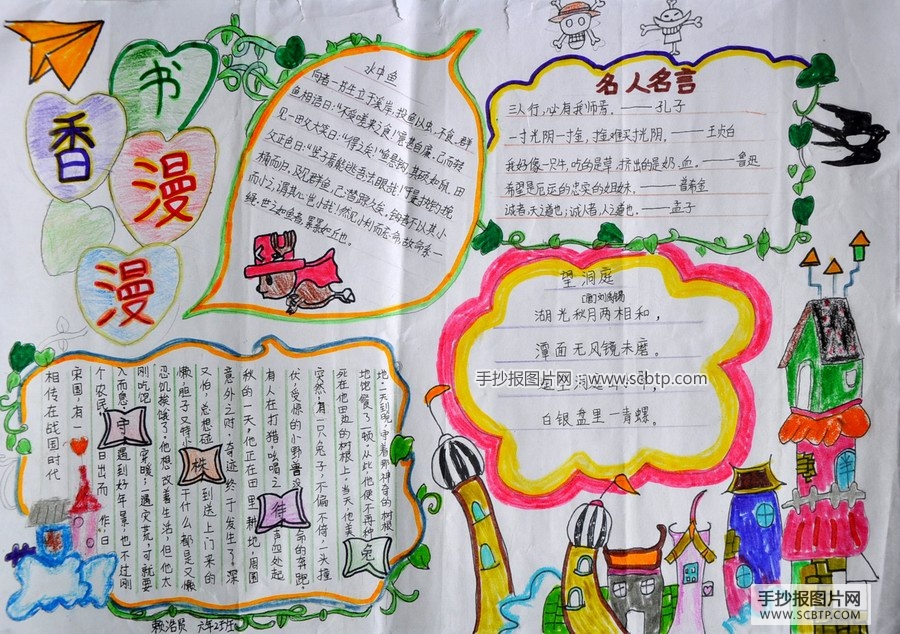 书
香
漫
漫
水中鱼
向者一书生立于溪岸,投鱼以虫,不食,群
鱼相语曰:"不受嗟来之食!"意甚自廉。已而转
见一田父大笑曰:"得之矣!"鱼急顾,其硕如鼠,田
父正色曰:"竖子焉能逃吾法眼哉!"于是
桶而归,及见群鱼,已潜踪久矣。钓者不以其小
而小之,谓其心岂小哉!然见小利而忘命,故命系一
缕,世之如鱼者,累累如丘也。
名人名言
三人行,必有我师焉。——孔子
一寸光阴一寸金,
我好像一只牛,吃的是草,挤出的是奶、血。——鲁迅
希望是厄运的忠实的姐妹。——普希金
诚者,天之道也;诚人者,人之道也。——孟子
望洞庭
[唐]刘禹锡
湖光秋月两相和,
潭面无风镜未磨。
白银盘里一青螺。
相传在战国时代
宋国,有一
个农民,日出而作,日
入而息,遇到好年景也不过刚
刚吃饱穿暖;遭灾荒,可就要
忍饥挨饿了。他想改善生活,但他太
懒,胆子又特小,干什么都是又懒
又怕,总想碰到送上门来的
意外之财。奇迹终于发生了。深
秋的一天,他正在田里耕地,周围
有人在打猎。吆喝之声四处起
伏,受惊的小野兽没命的奔跑。
突然,有一只兔子,不偏不倚,一头撞
死在他田边的树根上。当天,他美
地饱餐了一顿。从此,他便不再种
地。一天到晚,守着那神奇的树根。
守
株
待
兔
手抄报图片网:www.scbtp.com
手抄报图片网
WWW.SCBTP.COM